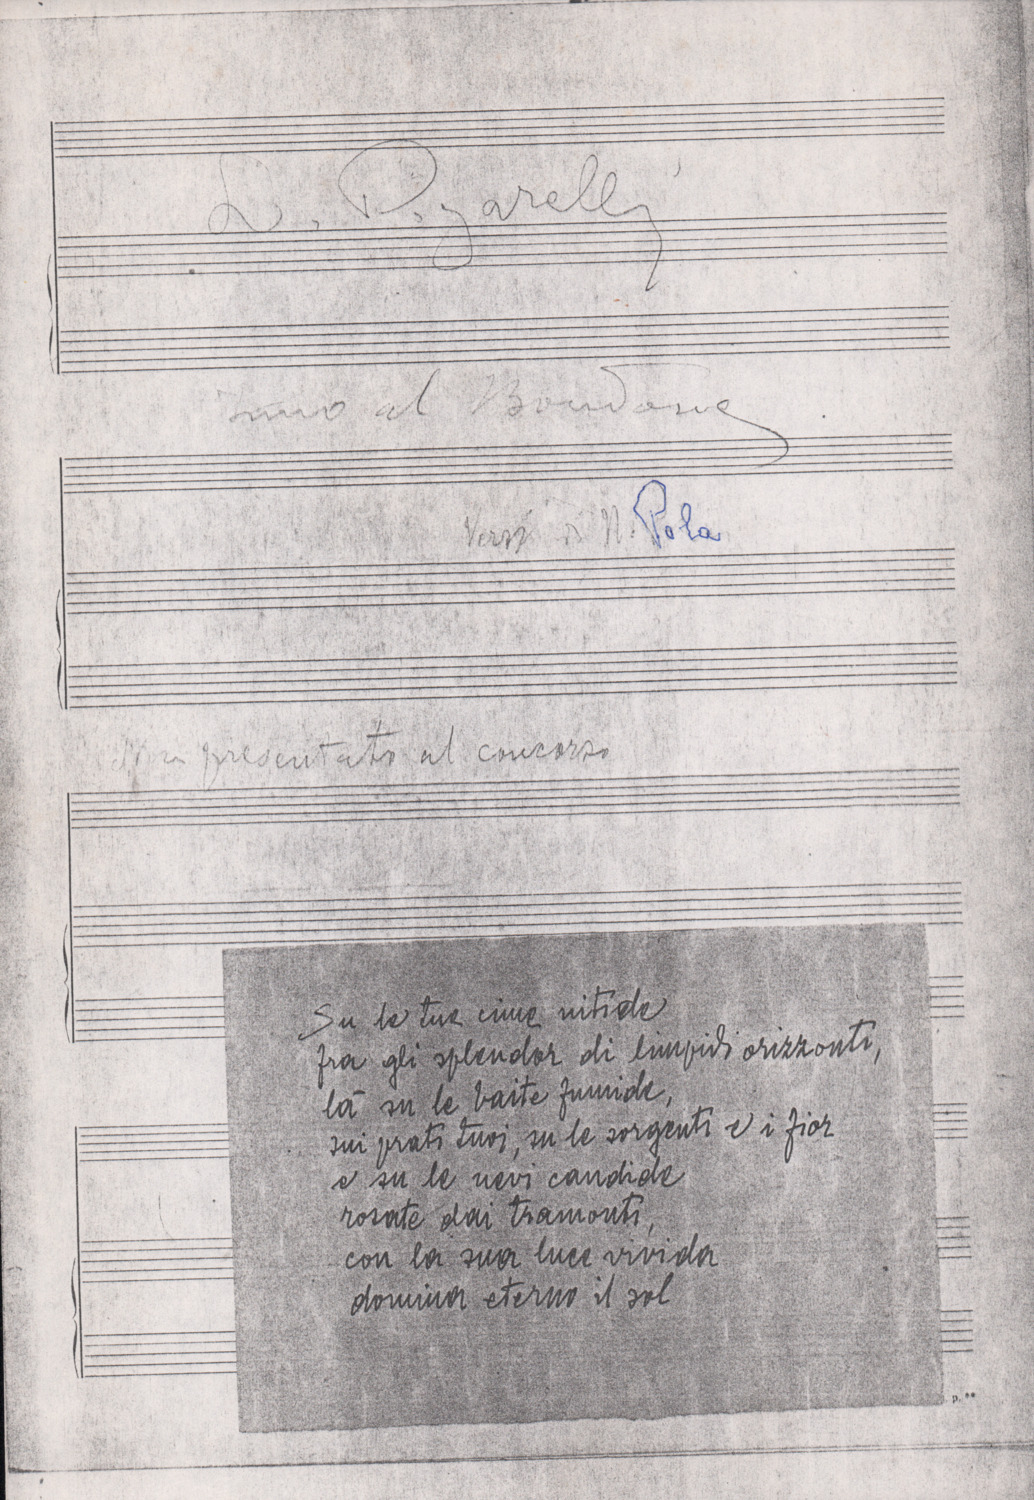 L. Pigarelli
inno al Bondone
Versi di N. Pola
Non presentato al concorso
Su le tue cime nitide
fra gli splendor di limpidi orizzonti,
là su le baite fumide,
sui prati tuoi, su le sorgenti e i fior
e su le nevi candide
rosate dai tramonti,
con la sua luce vivida
domina eterno il sol
p. **